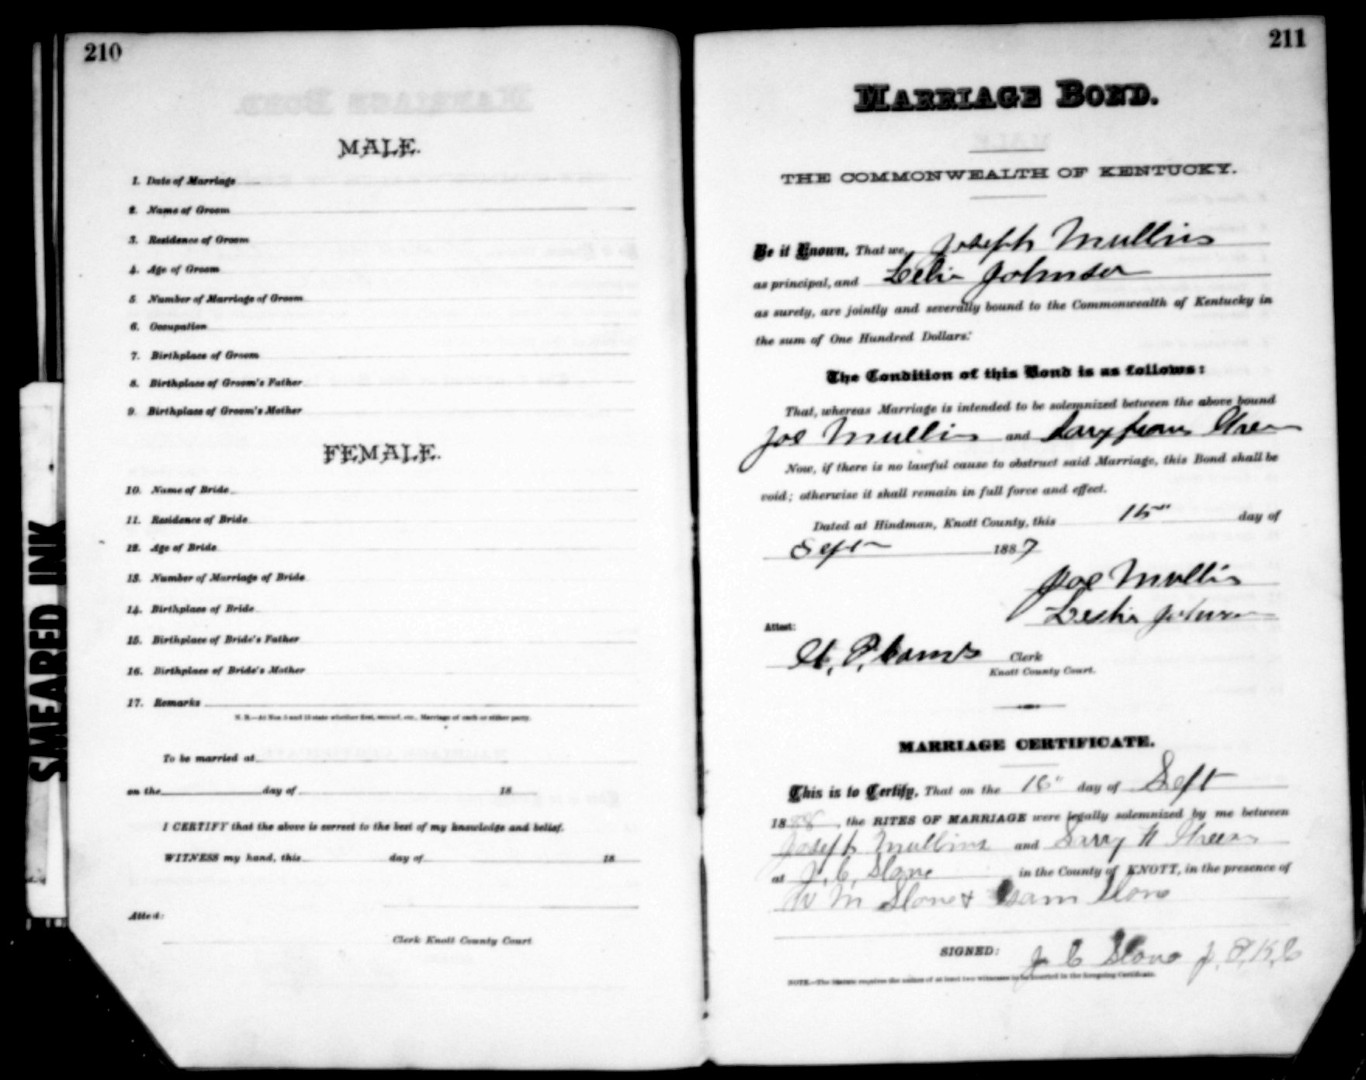 210
MALE.
1. Date of Marriage
2. Name of Groom
3. Residence of Groom
4. Age of Groom
5. Number of Marriage of Groom
6. Occupation
7. Birthplace of Groom
8. Birthplace of Groom's Father
9. Birthplace of Groom's Mother
FEMALE.
10. Name of Bride
11. Residence of Bride
12. Age of Bride
13. Number of Marriage of Bride
14. Birthplace of Bride
15. Birthplace of Bride's Father
16. Birthplace of Bride's Mother
17. Remarks
N. B.—At Nos. 5 and 13 state whether first, second, etc., Marriage of each or either party.
To be married at
on the day of 18
I CERTIFY that the above is correct to the best of my knowledge and belief.
WITNESS my hand, this day of 18
Attest:
Clerk Knott County Court
SMEARED INK
211
MARRIAGE BOND.
THE COMMONWEALTH OF KENTUCKY.
Be it Known, That we, Joseph Mullins
as principal, and Johnson
as surety, are jointly and severally bound to the Commonwealth of Kentucky in
the sum of One Hundred Dollars:
The Condition of this Bond is as follows:
That, whereas Marriage is intended to be solemnized between the above bound
Joe Mullins and
Now, if there is no lawful cause to obstruct said Marriage, this Bond shall be
void; otherwise it shall remain in full force and effect.
Dated at Hindman, Knott County, this 15" day of
Sept 1887
Joe Mullis
Leslie Johnson
Attest:
Clerk
Knott County Court.
MARRIAGE CERTIFICATE.
This is to Certify, That on the day of Sept
1888, the RITES OF MARRIAGE were legally solemnized by me between
Joseph Mullins and Sarry
at J. C. Slone in the County of KNOTT, in the presence of
W M Slone & Isam Slone
SIGNED: J C Slone J. P. K. C
NOTE.—The Statute requires the names of at least two witnesses to be inserted in the foregoing Certificate.